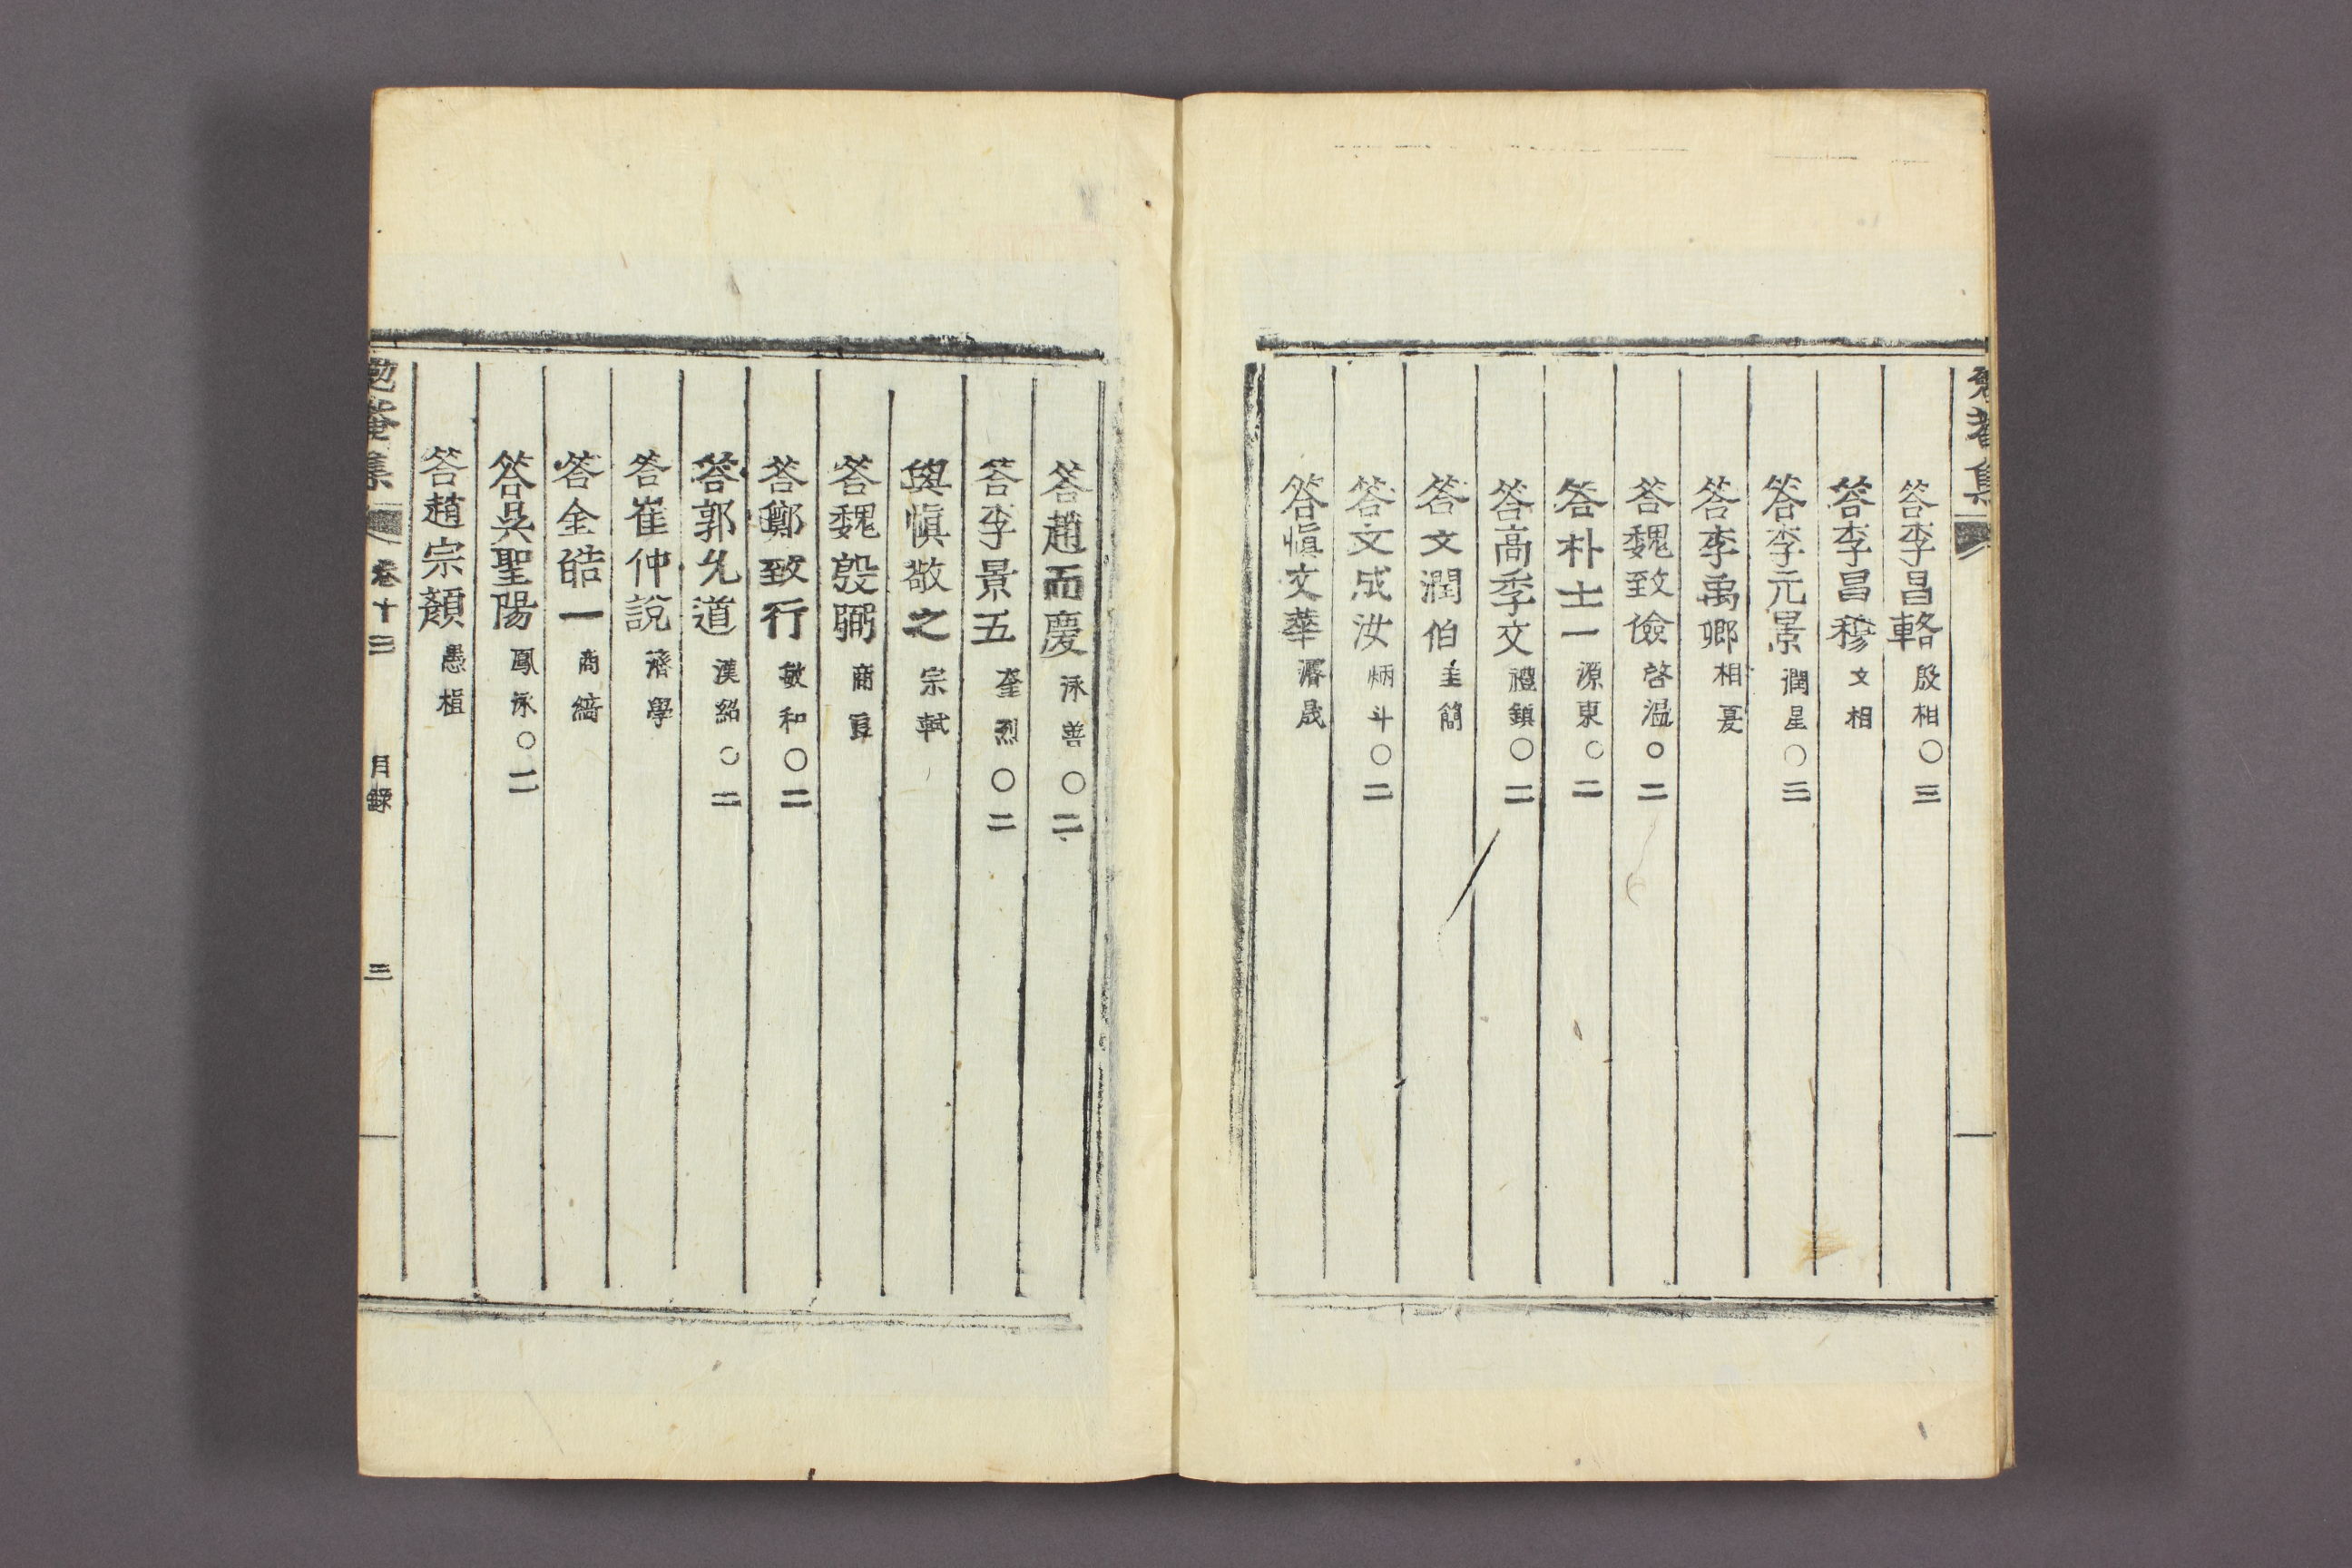 勉菴集
答李昌輅 殷相○三
答李昌穆 文相
答李元景 潤星○三
答李禹卿 相夏
答魏致儉 啓溫○二
答朴士一 源東○二
答高季文 禮鎭○二
答文潤伯 圭簡
答文成汝 炳斗○二
答愼文華 濟晟
答趙而慶 泳善○二
答李景五 奎烈○二
與愼敬之 宗軾
答魏殷弼 商良
答鄭致行 敏和○二
答郭允道 漢紹○二
答崔仲說 濟學
答金皓一 商綺
答吳聖陽 鳳泳○二
答趙宗顏 愚植
勉菴集 卷十二 目錄 三